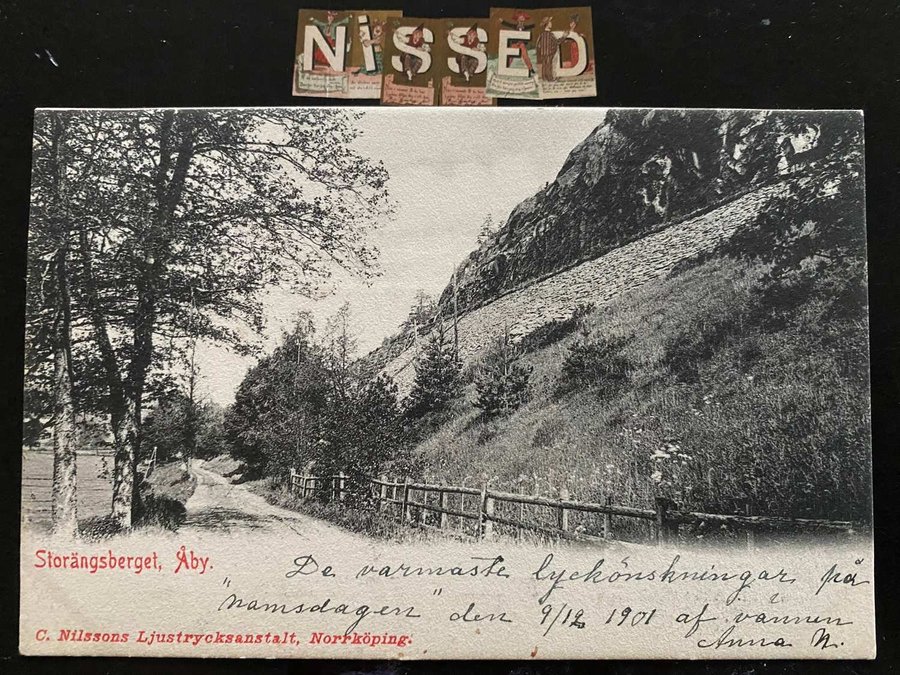 NiSSED
Storängsberget, Åby.
De varmaste lyckönskningar på
"namsdagen" den 9/12 1901 af vännen
Anna N.
C. Nilssons Ljustrycksanstalt, Norrköping.